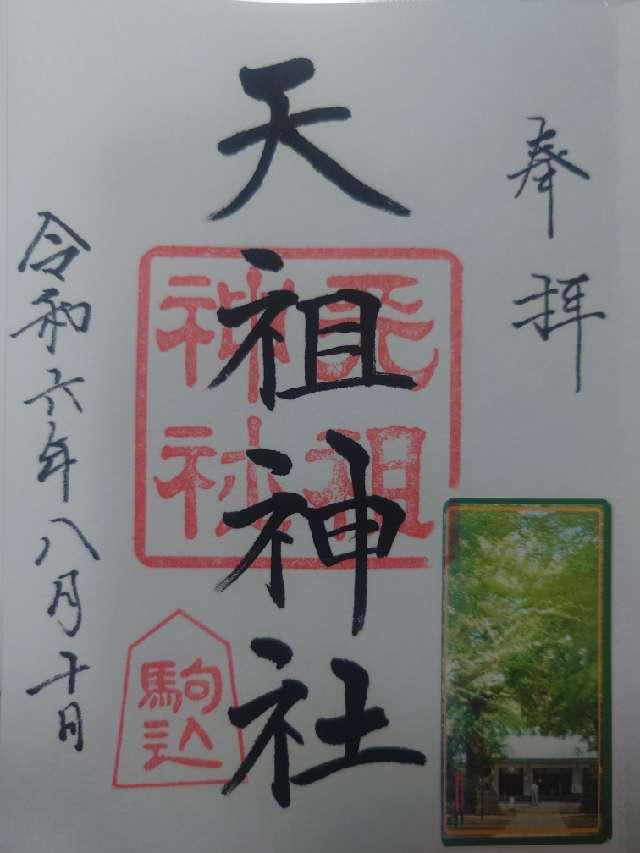 奉拝
天祖神社
天祖
神社
駒込
令和六年八月十日